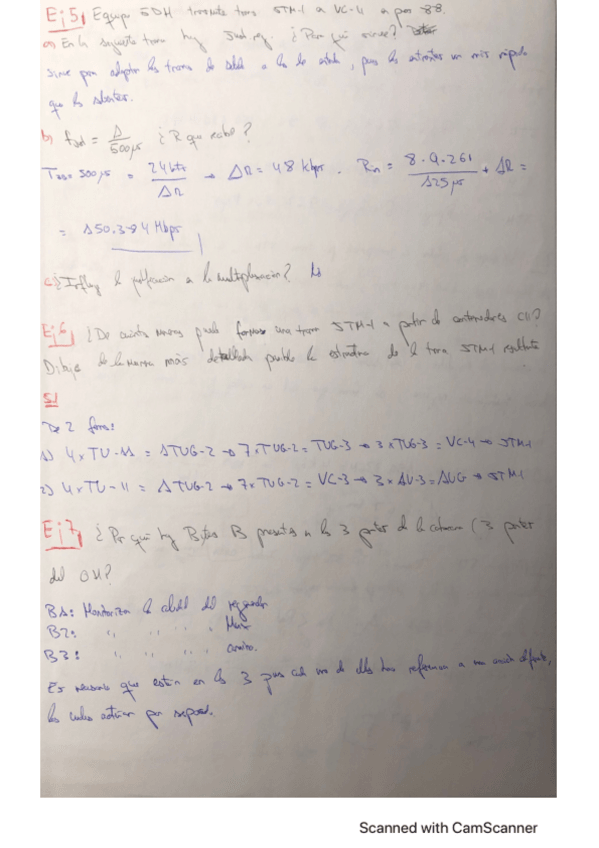 Ej 5) Equipo SDH transmite trama STM-1 a VC-4 a por 88.
a) En la siguiente trama hay Just neg. ¿Para qué sirve?
sirve para adaptar las tramas de salida a las de entrada, pues las entrantes van más rápido
que las salientes.
b) fjust = 1/500µs ¿R que entra?
T = 500µs = 24 bits/ΔR → ΔR = 48 kbps. Rin = 8·9·261/125µs + ΔR =
= 150.384 Mbps
c) ¿Influye la justificación a la multiplexación? No
Ej 6) ¿De cuántas maneras puedo formar una trama STM-1 a partir de contenedores C11?
Dibuja de la manera más detallada posible la estructura de la trama STM-1 resultante
5)
De 2 formas:
1) 4xTU-11 = 1TUG-2 → 7xTUG-2 = TUG-3 → 3xTUG-3 = VC-4 → STM-1
2) 4xTU-11 = 1TUG-2 → 7xTUG-2 = VC-3 → 3xAU-3 = AUG → STM-1
Ej 7) ¿Por qué hay Bytes B presentes en las 3 partes de la cabecera (3 partes
del OH?
B1: Monitoriza la calidad del regenerador
B2: " " " Mux
B3: " " " camino.
Es necesario que estén en los 3 pues cada uno de ellos hace referencia a una sección diferente,
las cuales actúan por separado.
Scanned with CamScanner